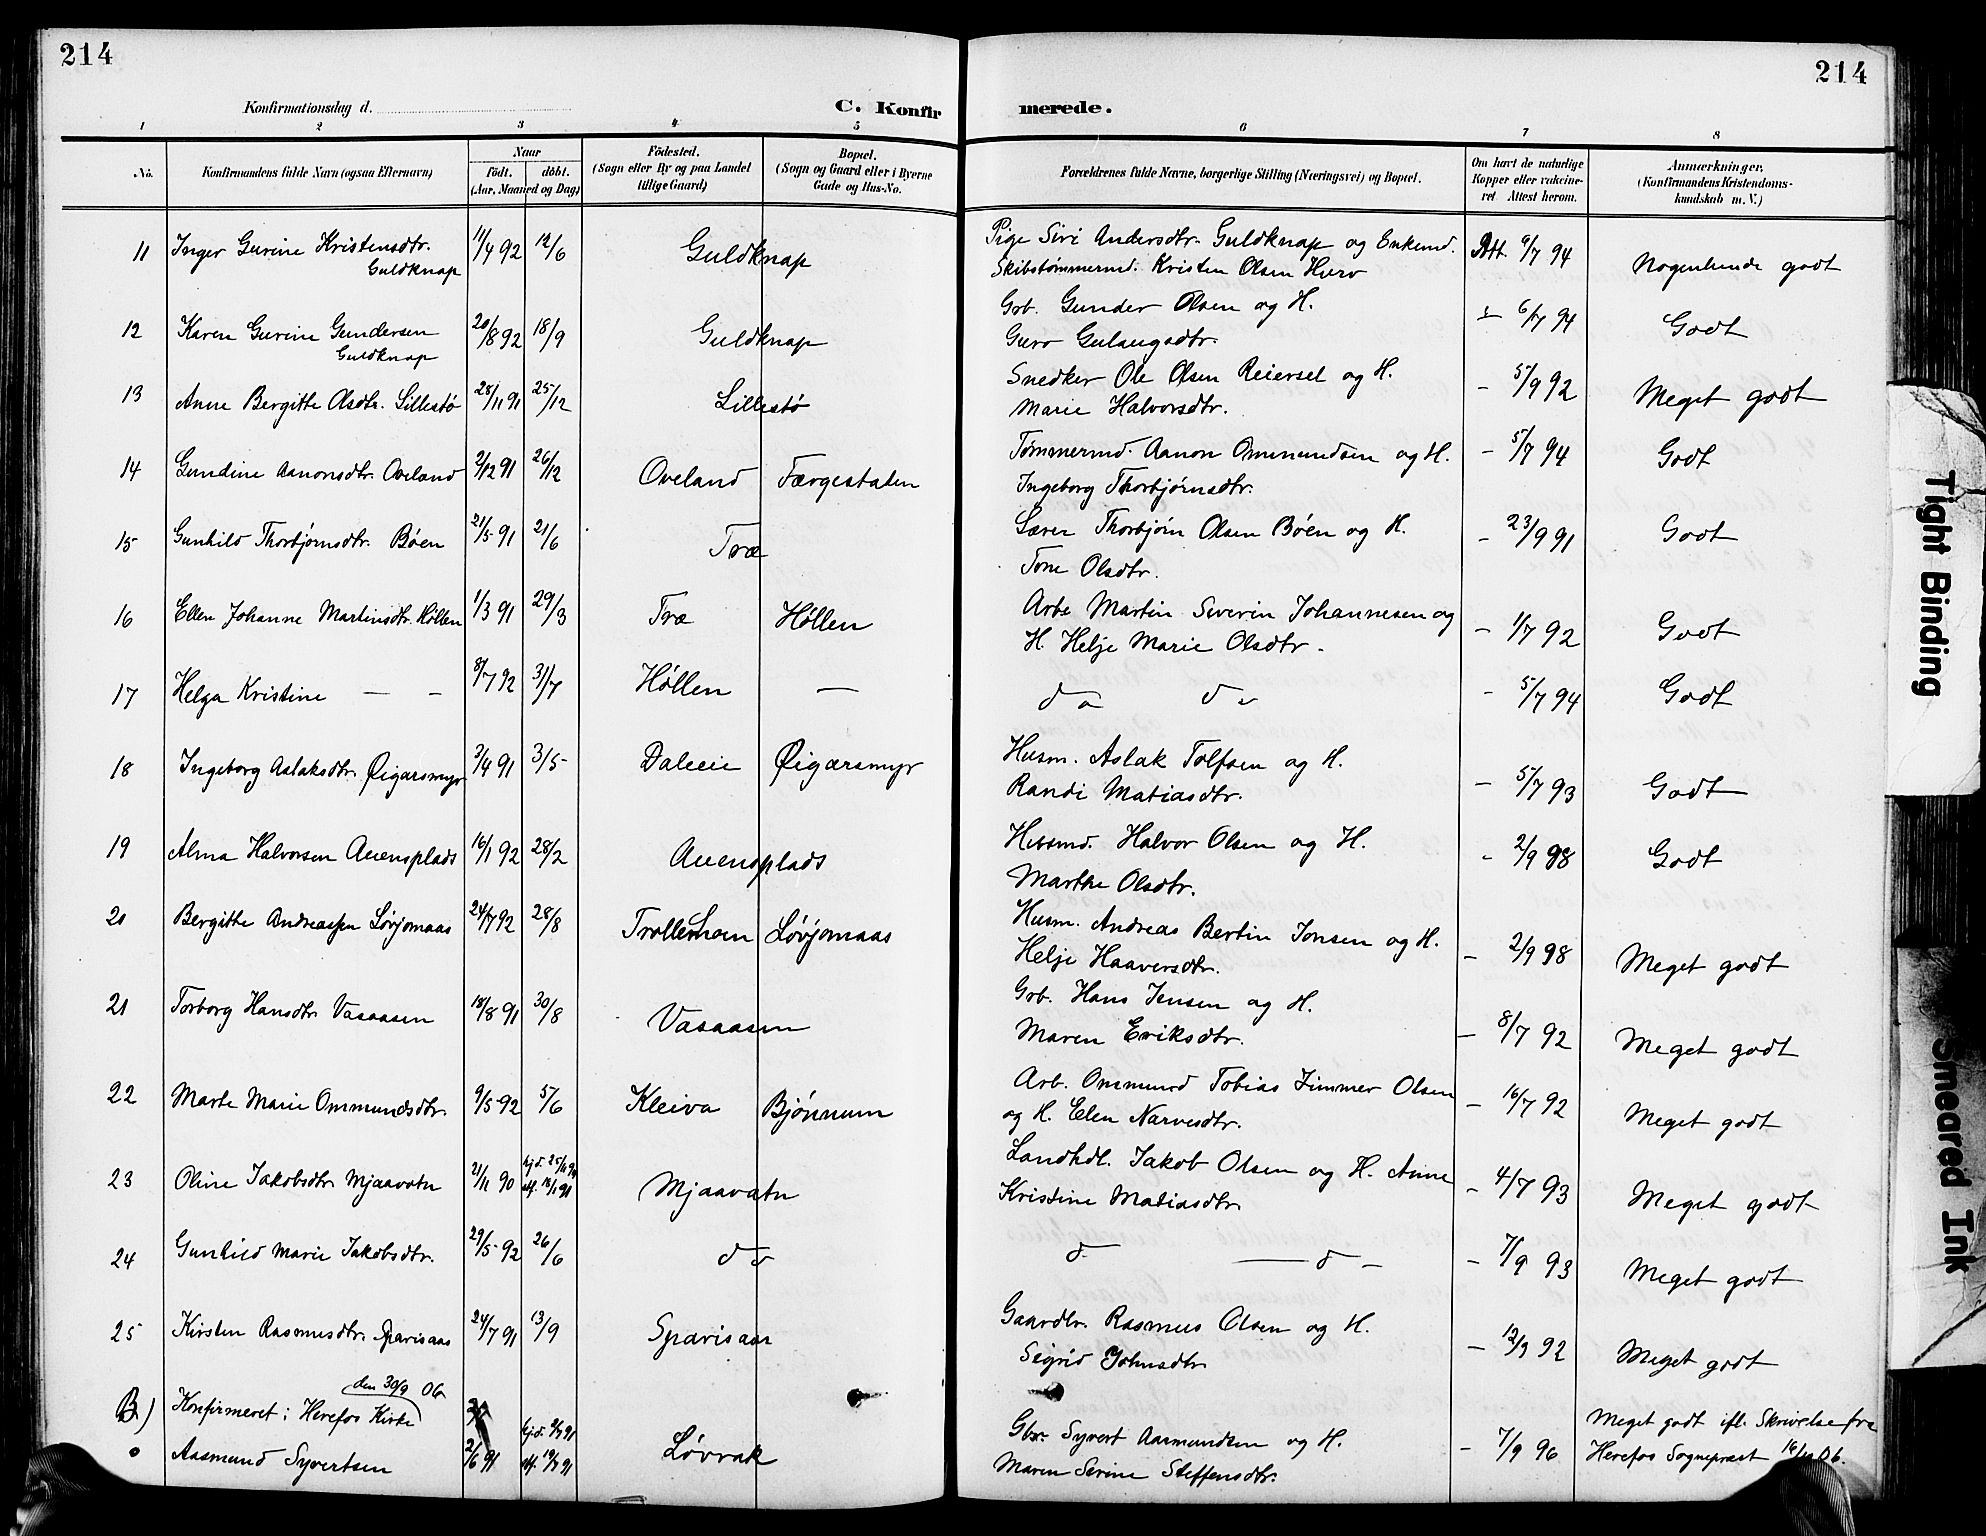 214
214
Konfirmationsdag d.
C. Konfir
merede.
1 2 3 4 5 6 7 8
No. Konfirmandens fulde Navn (ogsaa Efternavn) Naar Födested. Bopæl. Forældrenes fulde Navne, borgerlige Stilling (Næringsvei) og Bopæl. Om havt de naturlige Anmærkninger,
födt. döbt. (Sogn eller By og paa Landet (Sogn og Gaard eller i Byerne Kopper eller vakcine- (Konfirmandens Kristendoms-
(Aar, Maaned og Dag) tillige Gaard) Gade og Hus-No. ret Attest herom. kundskab m. V.)
11 Inger Gurine Kristensdtr. 11/4 92 12/6 Guldknap Pige Siri Andersdtr. Guldknap og Enkemd. Att. 6/7 94 Nogenlunde godt
Guldknap Skibstømmermd. Kristen Olsen
12 Karen Gurine Gundersen 20/8 92 18/9 Guldknap Grb. Gunder Olsen og H. 6/7 94 Godt
Guldknap Guro Gulaugsdtr.
13 Anne Bergitte Olsdtr. Lillestø 28/11 91 25/12 Lillestø Snedker Ole Olsen Reiersel og H. – 5/9 92 Meget godt
Marie Halvorsdtr.
14 Gundine Aanonsdtr. Oveland 2/12 91 26/12 Oveland Færgestaden Tømmermd. Aanon Ommundsen og H. – 5/7 94 Godt
Ingeborg Thorbjørnsdtr.
15 Gunhild Thorbjørnsdtr. Bøen 21/5 91 21/6 Træ Lærer Thorbjørn Olsen Bøen og H. – 23/9 91 Godt
Tone Olsdtr.
16 Ellen Johanne Martinsdtr. Høllen 1/3 91 29/3 Træ Høllen Arbe Martin Severin Johannesen og – 1/7 92 Godt
H. Helje Marie Olsdtr.
17 Helga Kristine — – 8/7 92 31/7 Høllen — do do – 5/7 94 Godt
18 Ingeborg Aslaksdtr. Øigarsmyr 3/4 91 3/5 Daleie Øigarsmyr Husm. Aslak Tolfsen og H. – 5/7 93 Godt
Randi Matiasdtr.
19 Alma Halvorsen Auensplads 16/1 92 28/2 Auensplads Husmd. Halvor Olsen og H. – 2/9 98 Godt
Marthe Olsdtr.
20 Bergitte Andreassen Løvjomaas 24/7 92 28/8 Løvjomaas Husm. Andreas Bertin Jonsen og H. – 2/9 98 Meget godt
Helje Haaversdtr.
21 Torborg Hansdtr. Vasaasen 18/8 91 30/8 Vasaasen Grb. Hans Jensen og H. – 8/7 92 Meget godt
Maren Eriksdtr.
22 Marte Marie Ommundsdtr. 9/5 92 5/6 Kleiva Bjønnum Arb. Ommund Tobias Zimmer Olsen – 16/7 92 Meget godt
og H. Elen Narvesdtr.
23 Oline Jakobsdtr. Mjaavatn 21/11 90 hjd. 25/11 90 Mjaavatn Landhdl. Jakob Olsen og H. Anne – 4/7 93 Meget godt
stf. 18/1 91 Kristine Matiasdtr.
24 Gunhild Marie Jakobsdtr. 29/5 92 26/6 do d — d – – 7/9 93 Meget godt
25 Kirsten Rasmusdtr. Sparisaas 24/7 91 13/9 Sparisaas Gaardbr. Rasmus Olsen og H. – 12/9 92 Meget godt
Sigrid Johnsdtr.
den 30/9 06
B) Konfirmeret i Herefos Kirke
Aasmund Syvertsen 2/6 91 hjd. 9/7 91 stf. 19/7 91 Løvrak Gbr. Syvert Aasmundsen og H. – 7/9 96 Meget godt ifl. Skrivelse fra
Maren Serine Steffensdtr. Herefos Sogneprest 16/10 06.
Tight Binding
Smeared Ink